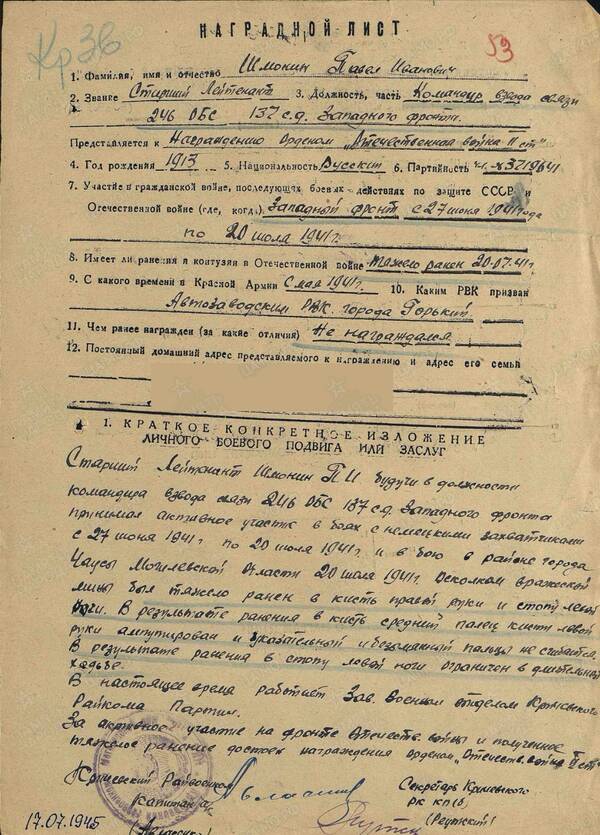 Кр ЗВ
53
НАГРАДНОЙ ЛИСТ
1. Фамилия, имя и отчество Шмонин Павел Иванович
2. Звание Старший Лейтенант 3. Должность, часть Командир взвода связи
246 ОБС 137 с.д. Западного фронта.
Представляется к Награждению Орденом „Отечественная война II ст"
4. Год рождения 1913 5. Национальность Русский 6. Партийность
7. Участие в гражданской войне, последующих боевых действиях по защите СССР и
Отечественной войне (где, когда) Западной фронт с 27 июня 1941 года
по 20 июля 1941 г.
8. Имеет ли ранения и контузии в Отечественной войне тяжело ранен 20.07.41 г
9. С какого времени в Красной Армии С мая 1941 г. 10. Каким РВК призван
Автозаводским РВК. города Горький.
11. Чем ранее награжден (за какие отличия) Не награждался
12. Постоянный домашний адрес представляемого к награждению и адрес его семьи
1. КРАТКОЕ КОНКРЕТНОЕ ИЗЛОЖЕНИЕ
ЛИЧНОГО БОЕВОГО ПОДВИГА ИЛИ ЗАСЛУГ
Старший Лейтенант Шмонин П И будучи в должности
командира взвода связи 246 ОБС 137 с.д. Западного фронта
принимал активное участие в боях с немецкими захватчиками
с 27 июня 1941 г по 20 июля 1941 г и в бою в районе города
Чаусы Могилевской Области 20 июля 1941 г. Осколком вражеской
мины был тяжело ранен в кисть правой руки и стопу левой
ноги. В результате ранения в кисть средний палец кисти левой
руки ампутирован и указательный и безымянный пальцы не сгибаются.
В результате ранения в стопу левой ноги ограничен в длительной
ходьбе.
В настоящее время работает Зав. Военным отделом Кричевского
Райкома Партии.
За активное участие на фронте Отечеств. войны и полученное
тяжелое ранение достоен награждения орденом „Отечеств война II ст"
Кричевский Райвоенком
Капитан
Секретарь Кричевского
РК КП(б)
(Реутский)
17.07.1945